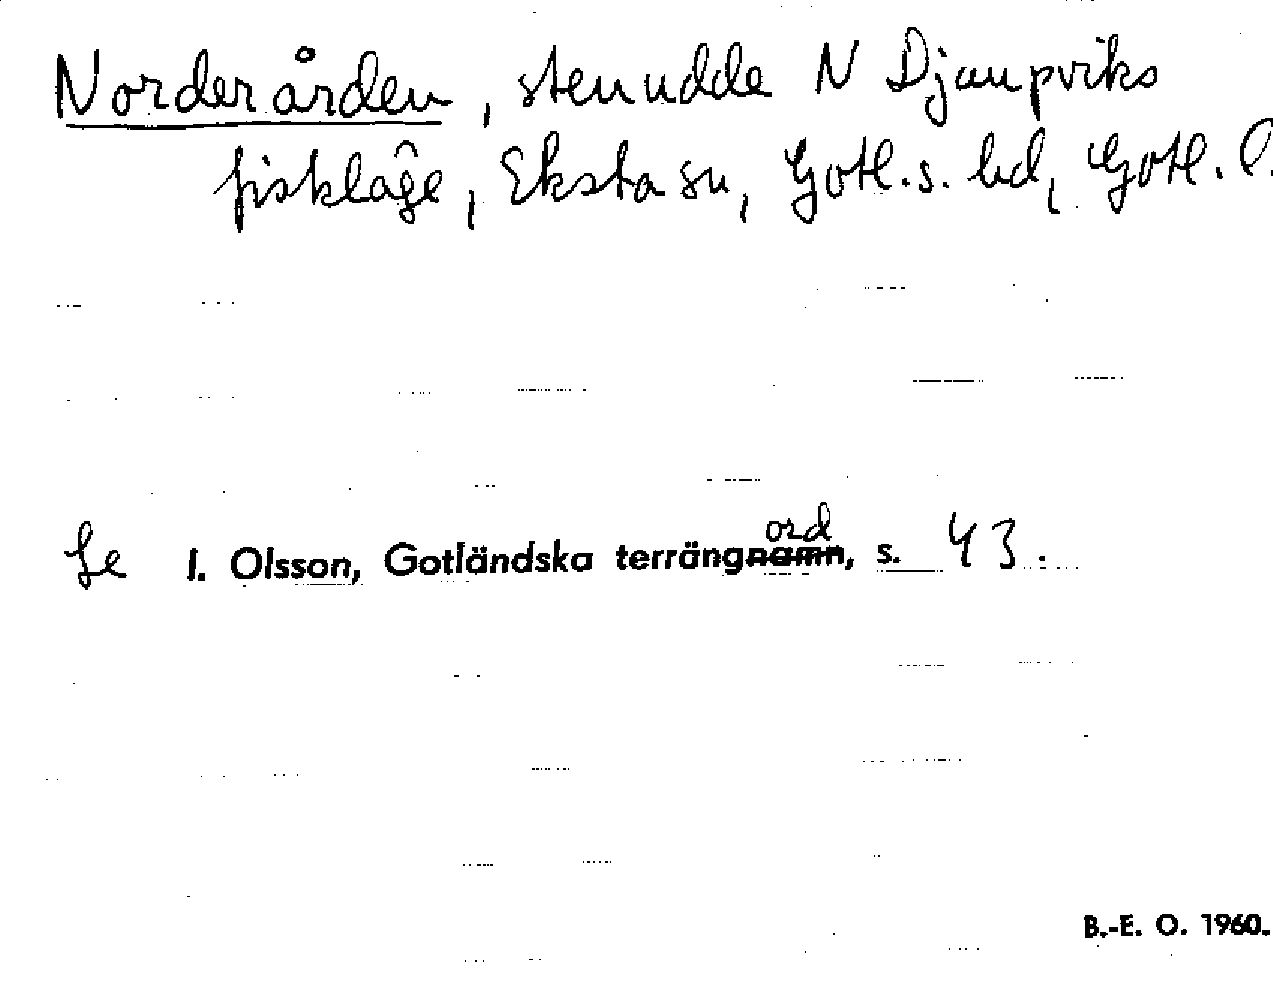 Norderården, stenudde N Djaupviks
fiskläge, Eksta sn, Gotl.s. hd, Gotl. l.
Se I. Olsson, Gotländska terrängnamn ord, s. 43.
B.-E. O. 1960.